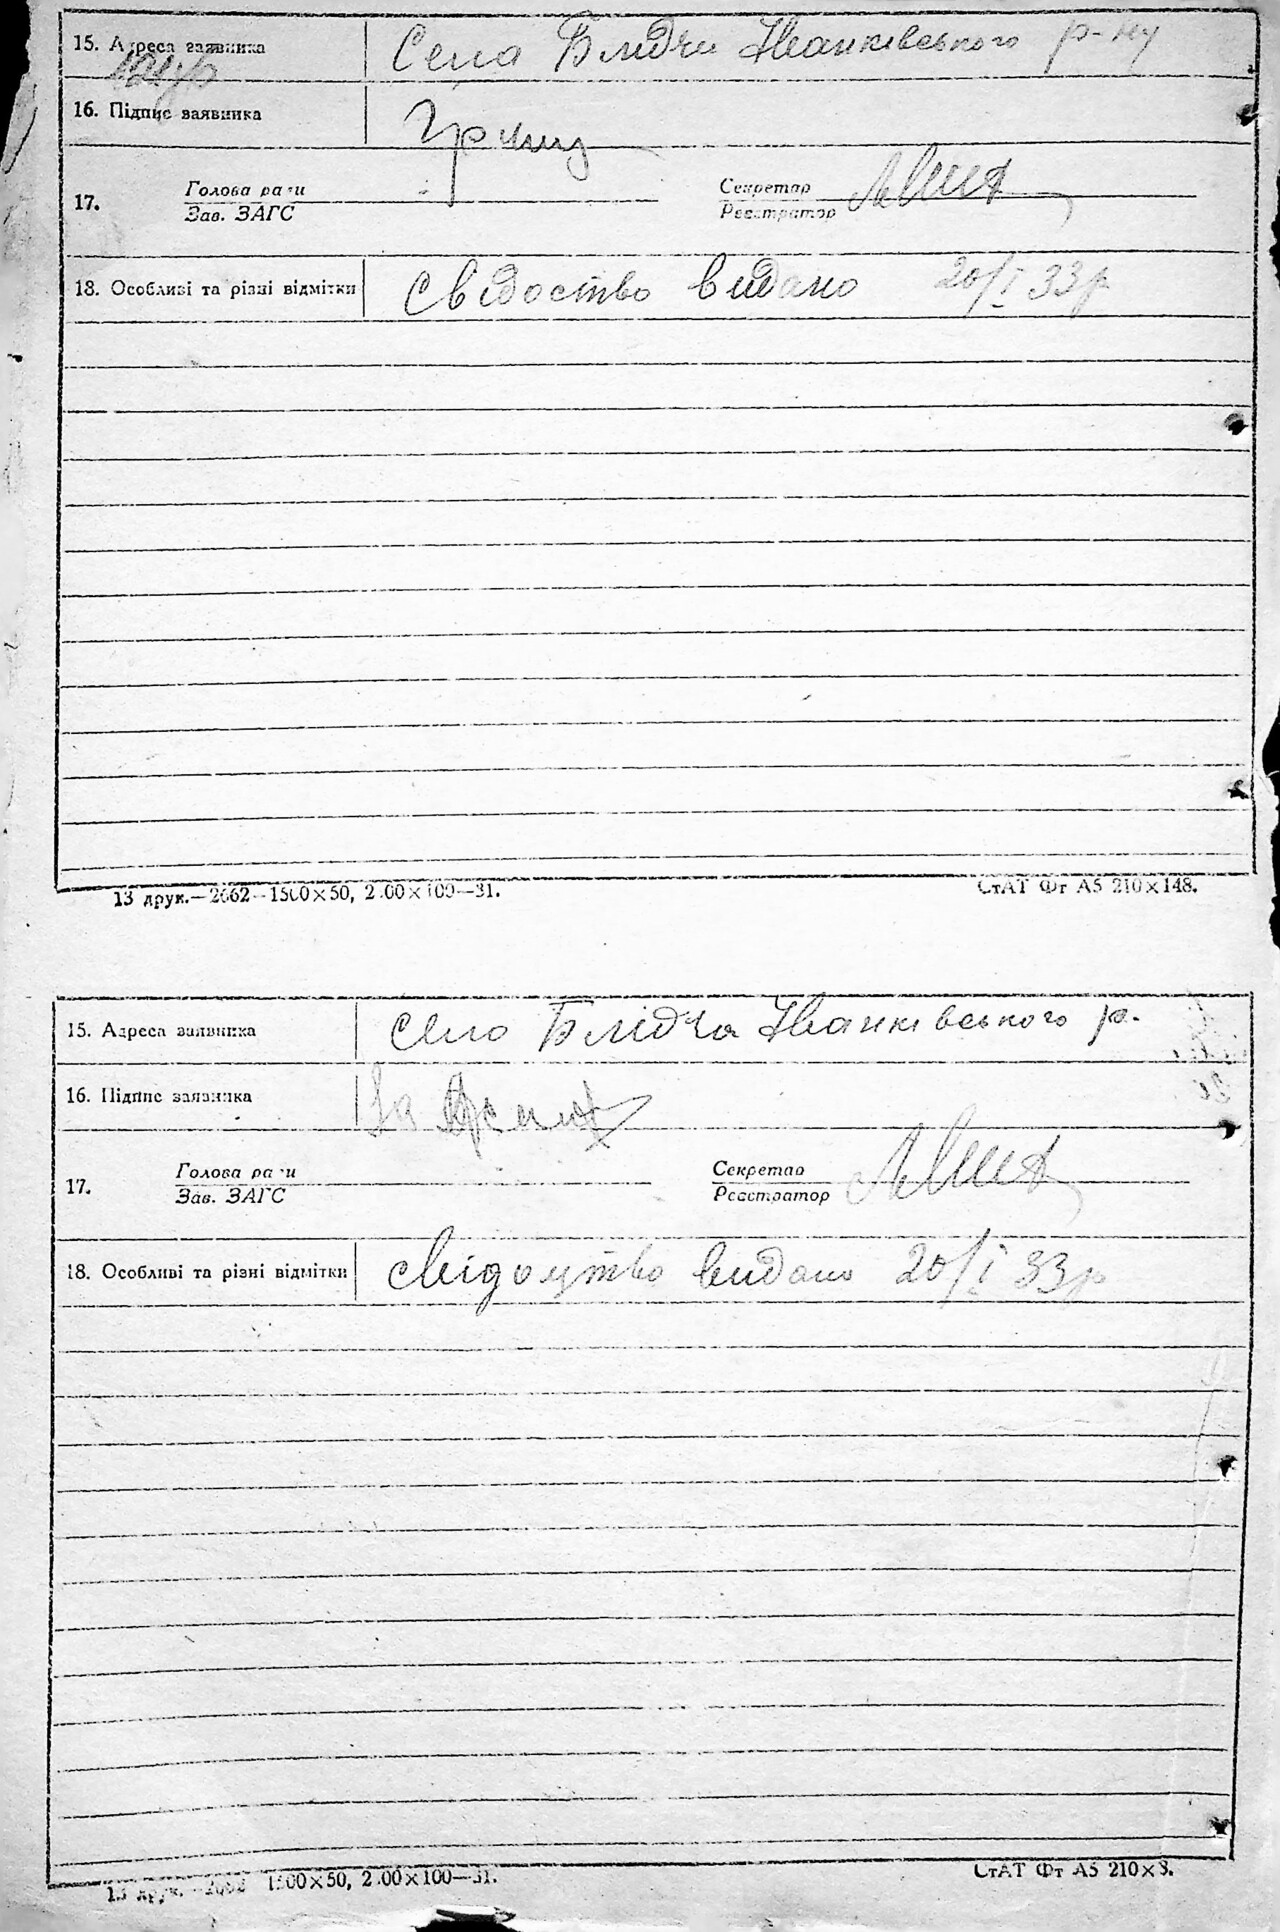 15. Адреса заявника Села Блидчи Іванківського р-ну
16. Підпис заявника
17. Голова ради Секретар
Зав. ЗАГС Реєстратор
18. Особливі та різні відмітки Свідоство видано 20/I 33р
13 друк.—2662—1500×50, 2.00×100—31. СтАТ Фт А5 210×148.
15. Адреса заявника село Блідча Іванківського р.
16. Підпис заявника За
17. Голова ради Секретар
Зав. ЗАГС Реєстратор
18. Особливі та різні відмітки свідоцтво видано 20/I 33р
13 друк.—2662 1500×50, 2.00×100—31. СтАТ Фт А5 210×8.